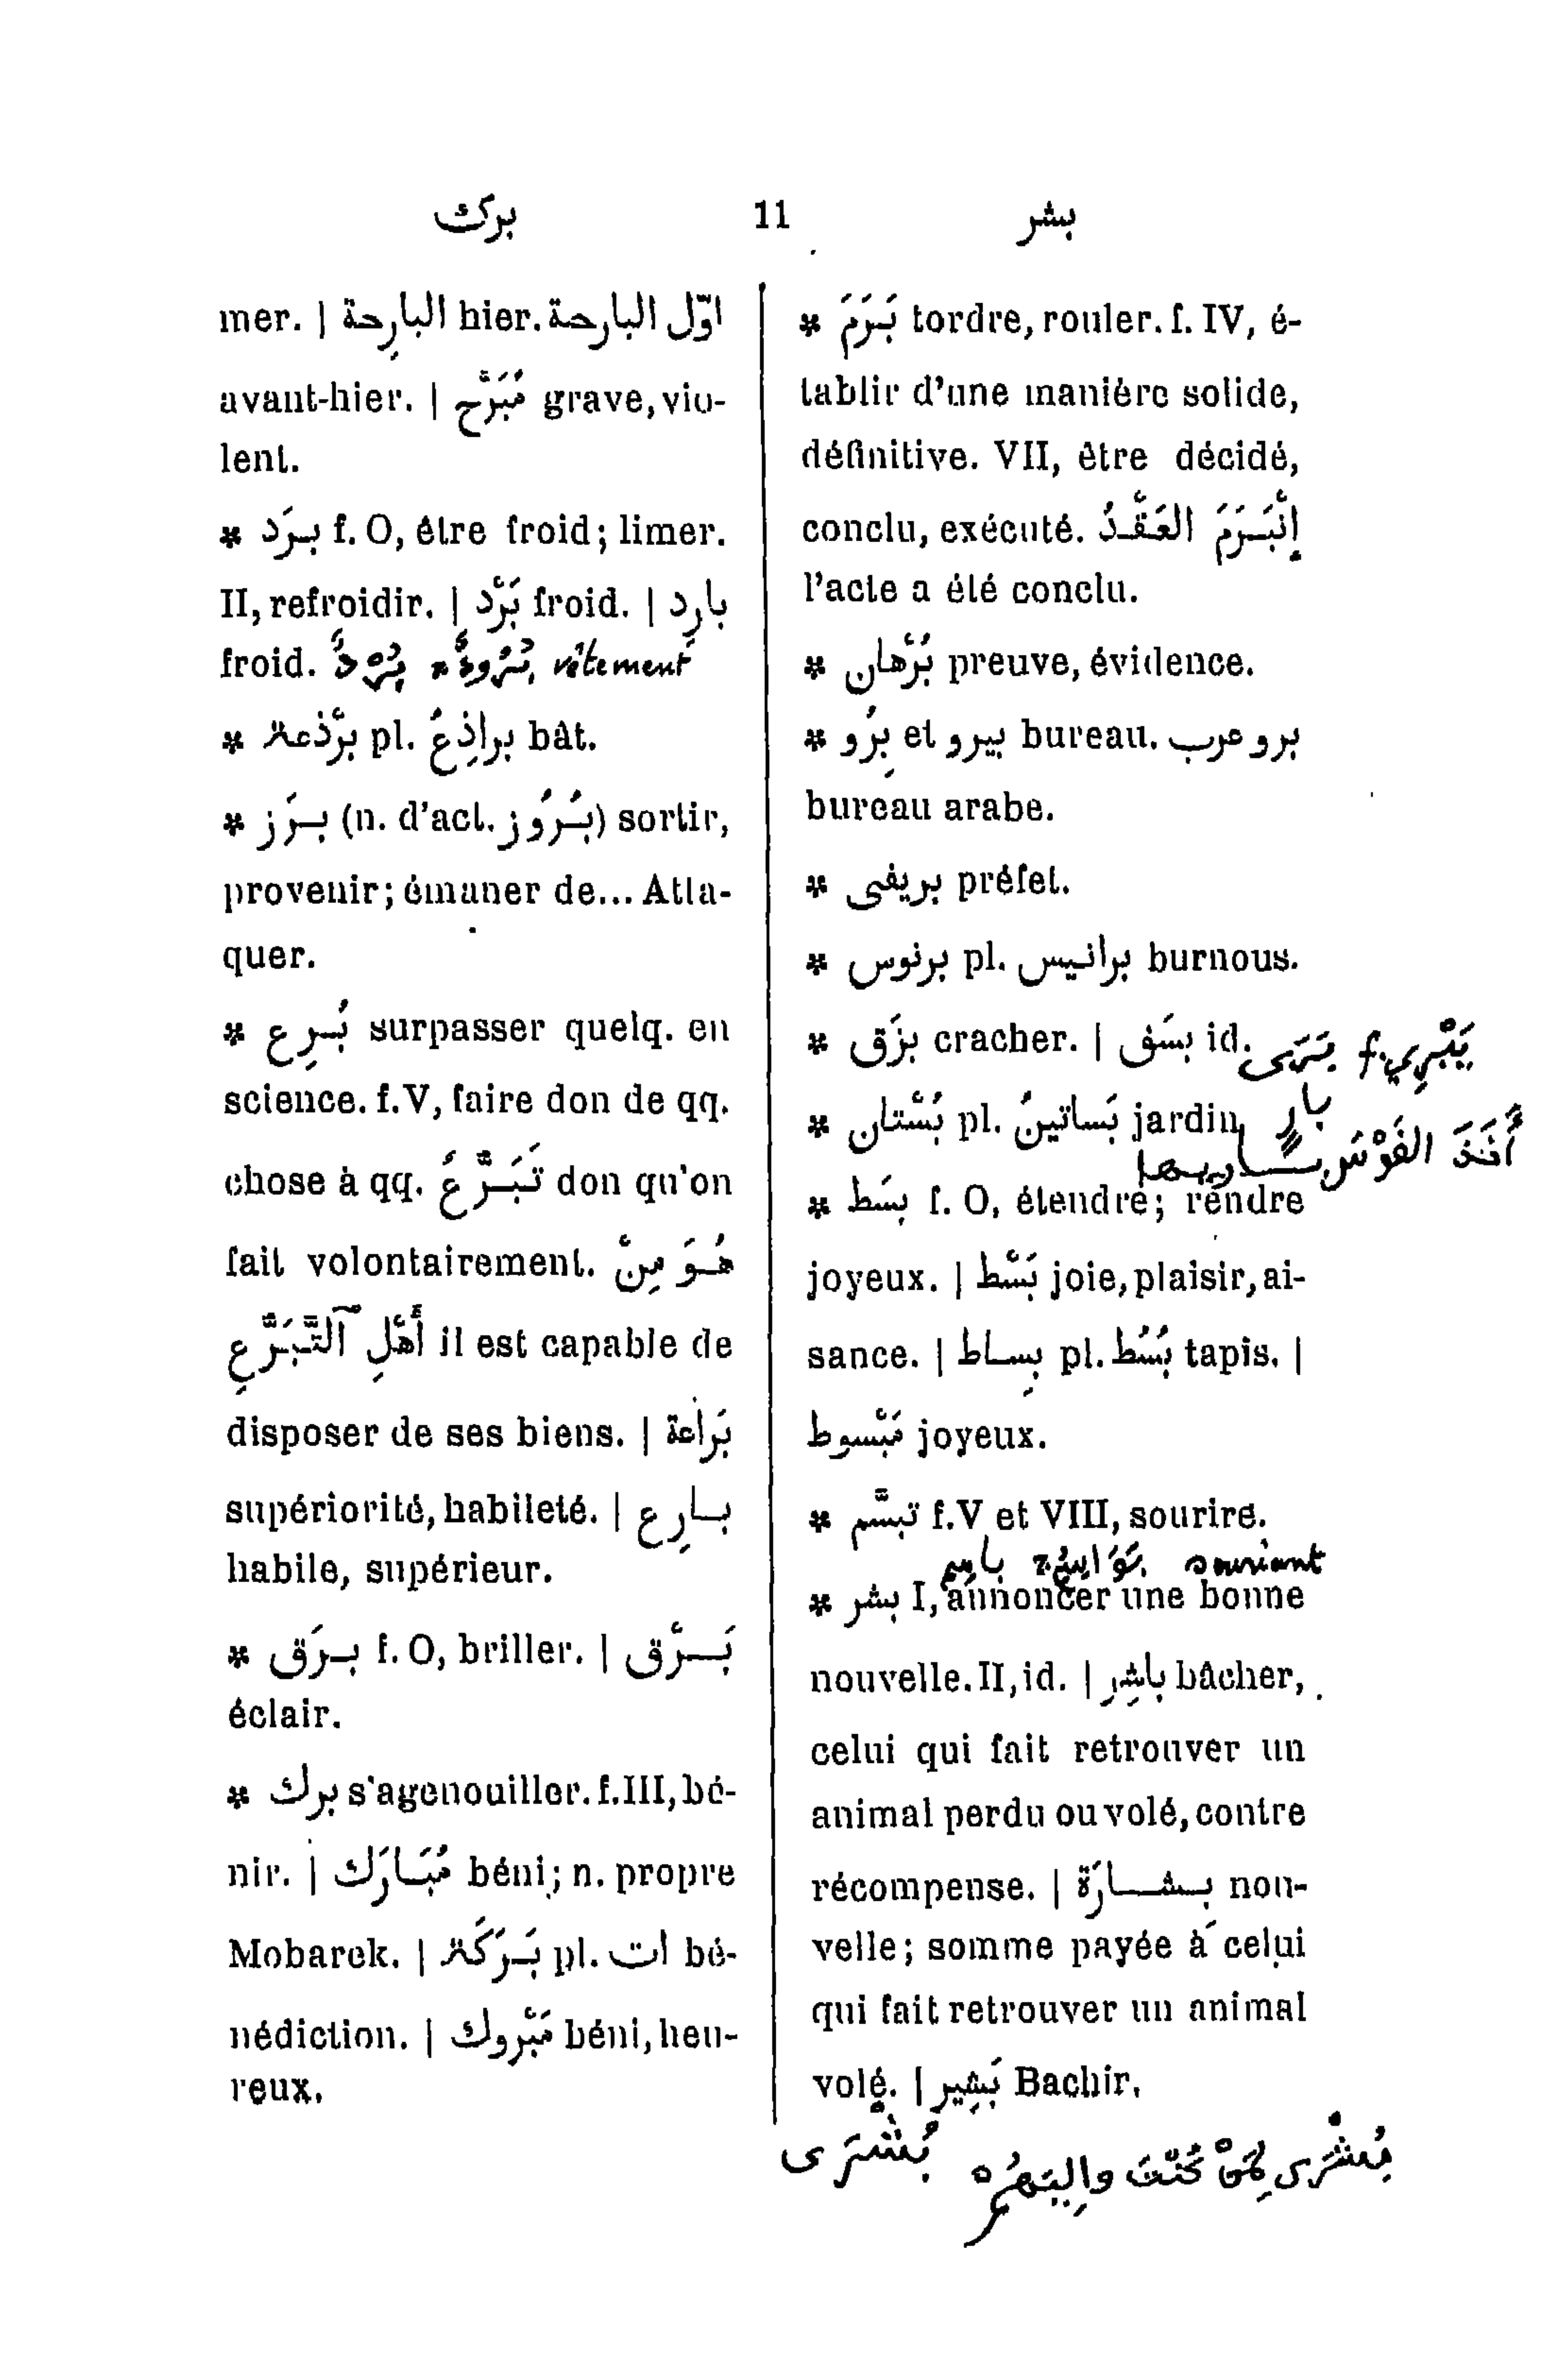 برك 11 بشر
mer. | البارِحة hier. اوّل البارحة
avant-hier. | مُبَرَّح grave, vio-
lent.
* برَد f. O, être froid; limer.
II, refroidir. | بَرْد froid. | بارِد
froid. بُرْدٌ بُرُودٌ vêtement
* برْذعة pl. براذِعُ bât.
* برَز (n. d'act. بُرُوز) sortir,
provenir; émaner de... Atta-
quer.
* بُرِع surpasser quelq. en
science. f. V, faire don de qq.
chose à qq. تَبَرَّعُ don qu'on
fait volontairement. هُوَ مِنْ
أَهْلِ ٱلتَّبَرَّعِ il est capable de
disposer de ses biens. | بَراعة
supériorité, habileté. | بارِع
habile, supérieur.
* برَق f. O, briller. | بَرْق
éclair.
* برك s'agenouiller. f. III, bé-
nir. | مُبَارَك béni; n. propre
Mobarek. | بَرَكَة pl. ات bé-
nédiction. | مَبْروك béni, heu-
reux.
* بَرَمَ tordre, rouler. f. IV, é-
tablir d'une manière solide,
définitive. VII, être décidé,
conclu, exécuté. إِنْبَرَمَ العَقْدُ
l'acte a été conclu.
* بُرْهان preuve, évidence.
* بِرُو et بيرو bureau. برو عرب
bureau arabe.
* بريفى préfet.
* برنوس pl. برانيس burnous.
* بزَق cracher. | بسَق id. بَرَى f. يَبْرِي
* بُسْتان pl. بَساتينُ jardin بارٍ
القَوْسَ باريها
* بسَط f. O, étendre; rendre
joyeux. | بَسْط joie, plaisir, ai-
sance. | بِساط pl. بُسُط tapis. |
مَبْسوط joyeux.
* تبسَّم f. V et VIII, sourire.
باسِم souriant
* بشر I, annoncer une bonne
nouvelle. II, id. | باشِر bâcher,
celui qui fait retrouver un
animal perdu ou volé, contre
récompense. | بشارَة nou-
velle; somme payée à celui
qui fait retrouver un animal
volé. | بَشِير Bachir.
بُشْرَى بُشْرَى لِمَنْ كُنْتَ